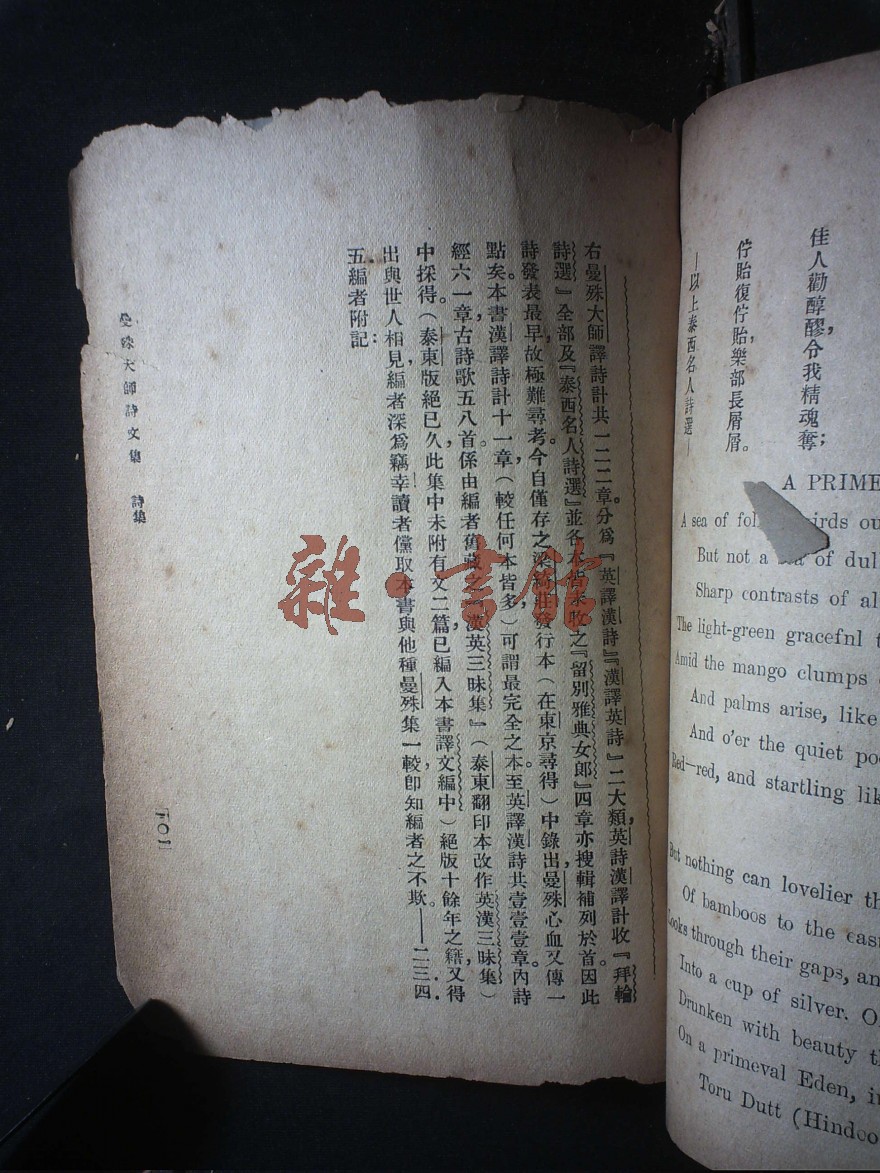 佳人勸醇醪，令我精魂奪；
佇眙復佇眙，樂部長屑屑。
—以上泰西名人詩選—
A PRIME
A sea of fol irds ou
But not a a of dull
Sharp contrasts of al
The light-green gracefnl t
Amid the mango clumps
And palms arise, like
And o'er the quiet poo
Red—red, and startling lik
But nothing can lovelier th
Of bamboos to the east
Looks through their gaps, an
Into a cup of silver. O
Drunken with beauty th
On a primeval Eden, in
Toru Dutt (Hindoo
右曼殊大師譯詩計共一二二章。分爲『英譯漢詩』『漢譯英詩』二大類，英詩漢譯計收『拜輪
詩選』全部及『泰西名人詩選』並各本皆未收之『留別雅典女郎』四章亦搜輯補列於首。因此
詩發表最早故極難尋考。今自僅存之梁綺莊發行本（在東京尋得）中錄出，曼殊心血又傳一
點矣。本書漢譯詩計十一章（較任何本皆多）可謂最完全之本。至英譯漢詩共壹壹壹章，內詩
經六一章，古詩歌五八首。係由編者舊藏之『漢英三昧集』（泰東翻印本改作英漢三昧集）
中採得。（泰東版絕已久，此集中未附有文二篇，已編入本書譯文編中）絕版十餘年之籍，又得
出與世人相見，編者深爲竊幸！讀者儻取本書與他種曼殊集一較，卽知編者之不欺。——二三．四．
五編者附記：
曼殊大師詩文集 詩集
一〇一
雜·書館